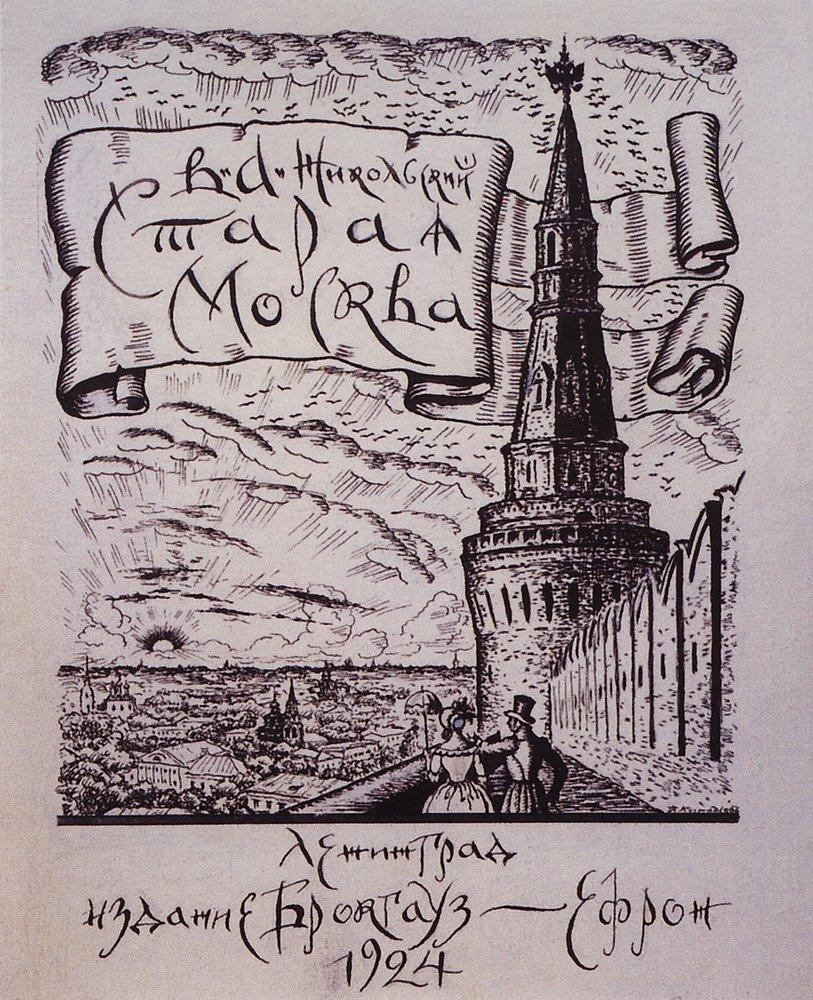 В. А. Никольский
Старая
Москва
Ленинград
издание Брокгауз — Ефрон
1924